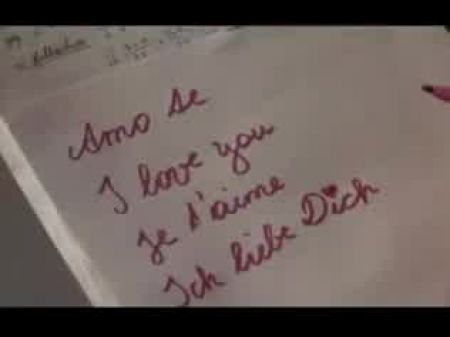 Amo te
I love you
je t'aime
Ich liebe Dich